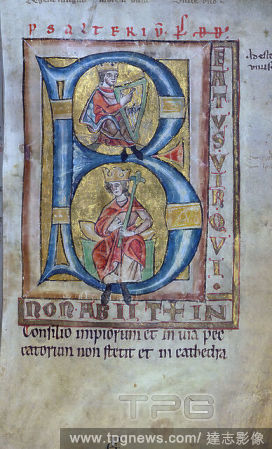 PSALTERIU
B
EATUSVIRQUI.
NON ABIIT IN
Consilio impiorum et in uia pec
catorum non stetit et in cathedra
TPG
www.tpgnews.com / 達志影像